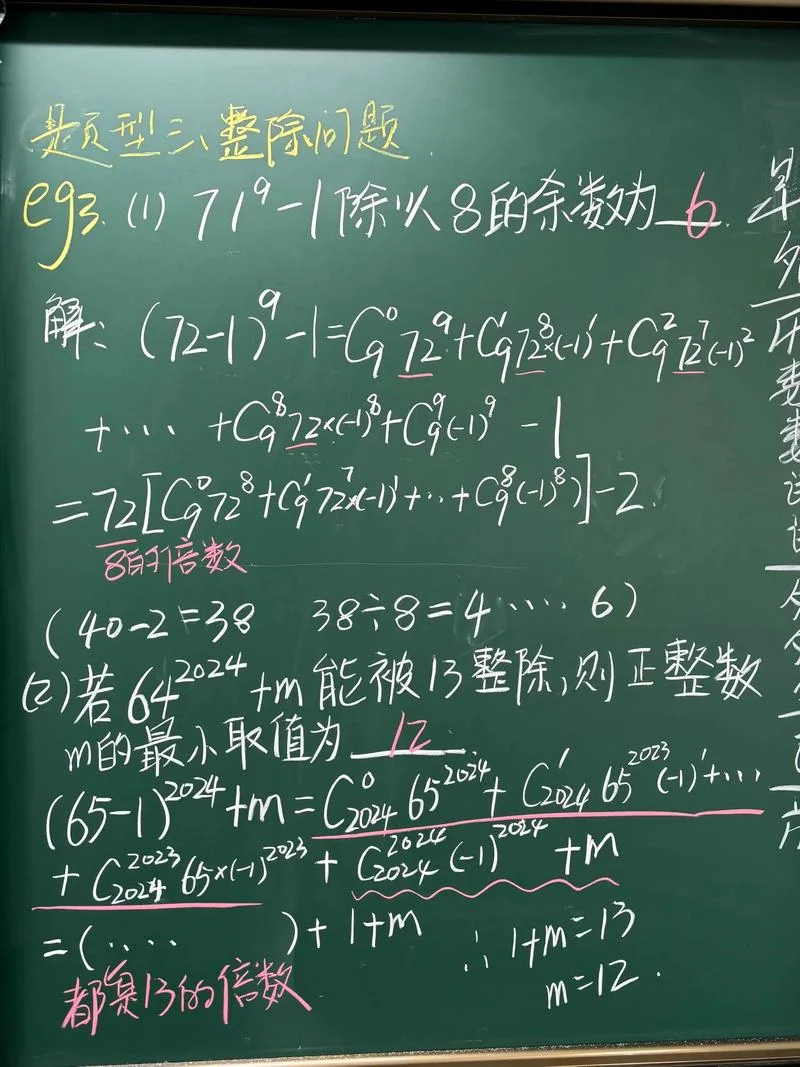 题型三、整除问题
eg3. (1) 71⁹-1除以8的余数为 6 .
解: (72-1)⁹-1=C₉⁰72⁹+C₉¹72⁸×(-1)¹+C₉²72⁷(-1)²
+⋯ +C₉⁸72×(-1)⁸+C₉⁹(-1)⁹ -1
=72[C₉⁰72⁸+C₉¹72⁷×(-1)¹+⋯+C₉⁸(-1)⁸)]-2.
8的倍数
(40-2=38 38÷8=4⋯⋯6)
(2)若64²⁰²⁴+m能被13整除,则正整数
m的最小取值为 12 .
(65-1)²⁰²⁴+m=C₂₀₂₄⁰65²⁰²⁴+C₂₀₂₄¹65²⁰²³(-1)¹+⋯
+C₂₀₂₄²⁰²³65×(-1)²⁰²³+C₂₀₂₄²⁰²⁴(-1)²⁰²⁴+m
=(⋯⋯ )+1+m ∴1+m=13
都是13的倍数 m=12.